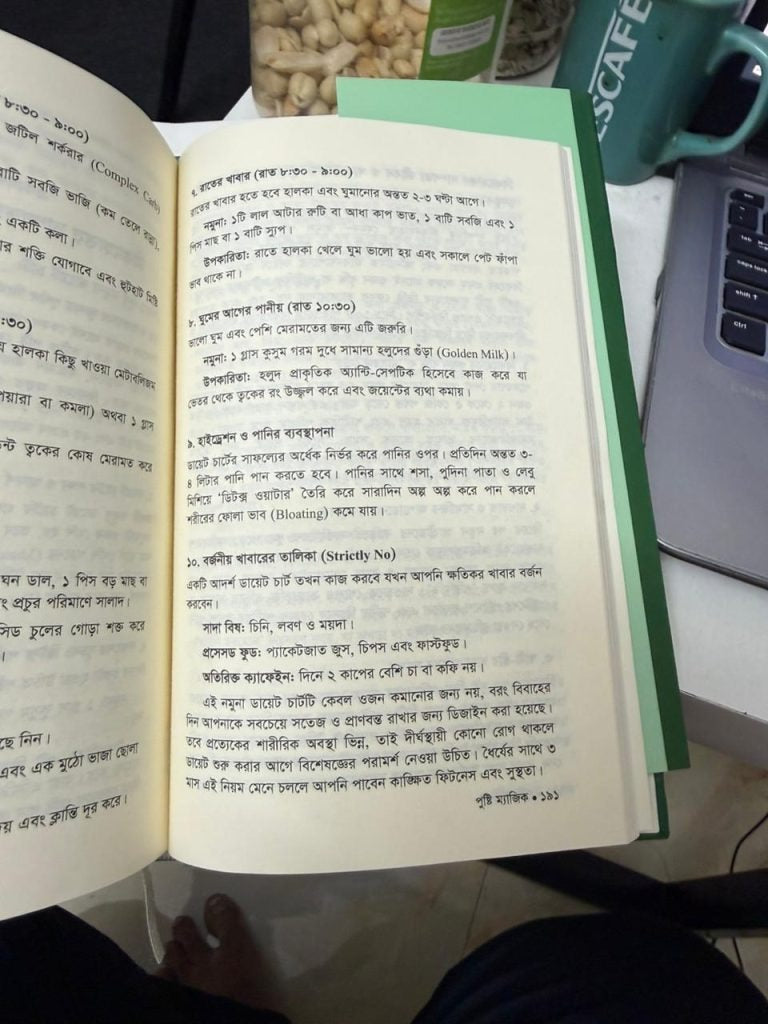 ৮:৩০ - ৯:০০)
জটিল শর্করার (Complex Carb)
বাটি সবজি ভাজি (কম তেলে রান্না),
একটি কলা।
শক্তি যোগাবে এবং হুটহাট মিষ্টি
:৩০)
হালকা কিছু খাওয়া মেটাবলিজম
পেয়ারা বা কমলা) অথবা ১ গ্লাস
ত্বকের কোষ মেরামত করে
ঘন ডাল, ১ পিস বড় মাছ বা
প্রচুর পরিমাণে সালাদ।
চুলের গোড়া শক্ত করে
নিন।
এবং এক মুঠো ভাজা ছোলা
এবং ক্লান্তি দূর করে।
৭. রাতের খাবার (রাত ৮:৩০ - ৯:০০)
রাতের খাবার হতে হবে হালকা এবং ঘুমানোর অন্তত ২-৩ ঘণ্টা আগে।
নমুনা: ১টি লাল আটার রুটি বা আধা কাপ ভাত, ১ বাটি সবজি এবং ১
পিস মাছ বা ১ বাটি স্যুপ।
উপকারিতা: রাতে হালকা খেলে ঘুম ভালো হয় এবং সকালে পেট ফাঁপা
ভাব থাকে না।
৮. ঘুমের আগের পানীয় (রাত ১০:৩০)
ভালো ঘুম এবং পেশি মেরামতের জন্য এটি জরুরি।
নমুনা: ১ গ্লাস কুসুম গরম দুধে সামান্য হলুদের গুঁড়া (Golden Milk)।
উপকারিতা: হলুদ প্রাকৃতিক অ্যান্টি-সেপটিক হিসেবে কাজ করে যা
ভেতর থেকে ত্বকের রং উজ্জ্বল করে এবং জয়েন্টের ব্যথা কমায়।
৯. হাইড্রেশন ও পানির ব্যবস্থাপনা
ডায়েট চার্টের সাফল্যের অর্ধেক নির্ভর করে পানির ওপর। প্রতিদিন অন্তত ৩-
৪ লিটার পানি পান করতে হবে। পানির সাথে শসা, পুদিনা পাতা ও লেবু
মিশিয়ে 'ডিটক্স ওয়াটার' তৈরি করে সারাদিন অল্প অল্প করে পান করলে
শরীরের ফোলা ভাব (Bloating) কমে যায়।
১০. বর্জনীয় খাবারের তালিকা (Strictly No)
একটি আদর্শ ডায়েট চার্ট তখন কাজ করবে যখন আপনি ক্ষতিকর খাবার বর্জন
করবেন।
সাদা বিষ: চিনি, লবণ ও ময়দা।
প্রসেসড ফুড: প্যাকেটজাত জুস, চিপস এবং ফাস্টফুড।
অতিরিক্ত ক্যাফেইন: দিনে ২ কাপের বেশি চা বা কফি নয়।
এই নমুনা ডায়েট চার্টটি কেবল ওজন কমানোর জন্য নয়, বরং বিবাহের
দিন আপনাকে সবচেয়ে সতেজ ও প্রাণবন্ত রাখার জন্য ডিজাইন করা হয়েছে।
তবে প্রত্যেকের শারীরিক অবস্থা ভিন্ন, তাই দীর্ঘস্থায়ী কোনো রোগ থাকলে
ডায়েট শুরু করার আগে বিশেষজ্ঞের পরামর্শ নেওয়া উচিত। ধৈর্যের সাথে ৩
মাস এই নিয়ম মেনে চললে আপনি পাবেন কাঙ্ক্ষিত ফিটনেস এবং সুস্থতা।
পুষ্টি ম্যাজিক • ১৯১
ESCAFÉ
Tab
caps lock
shift
ctrl